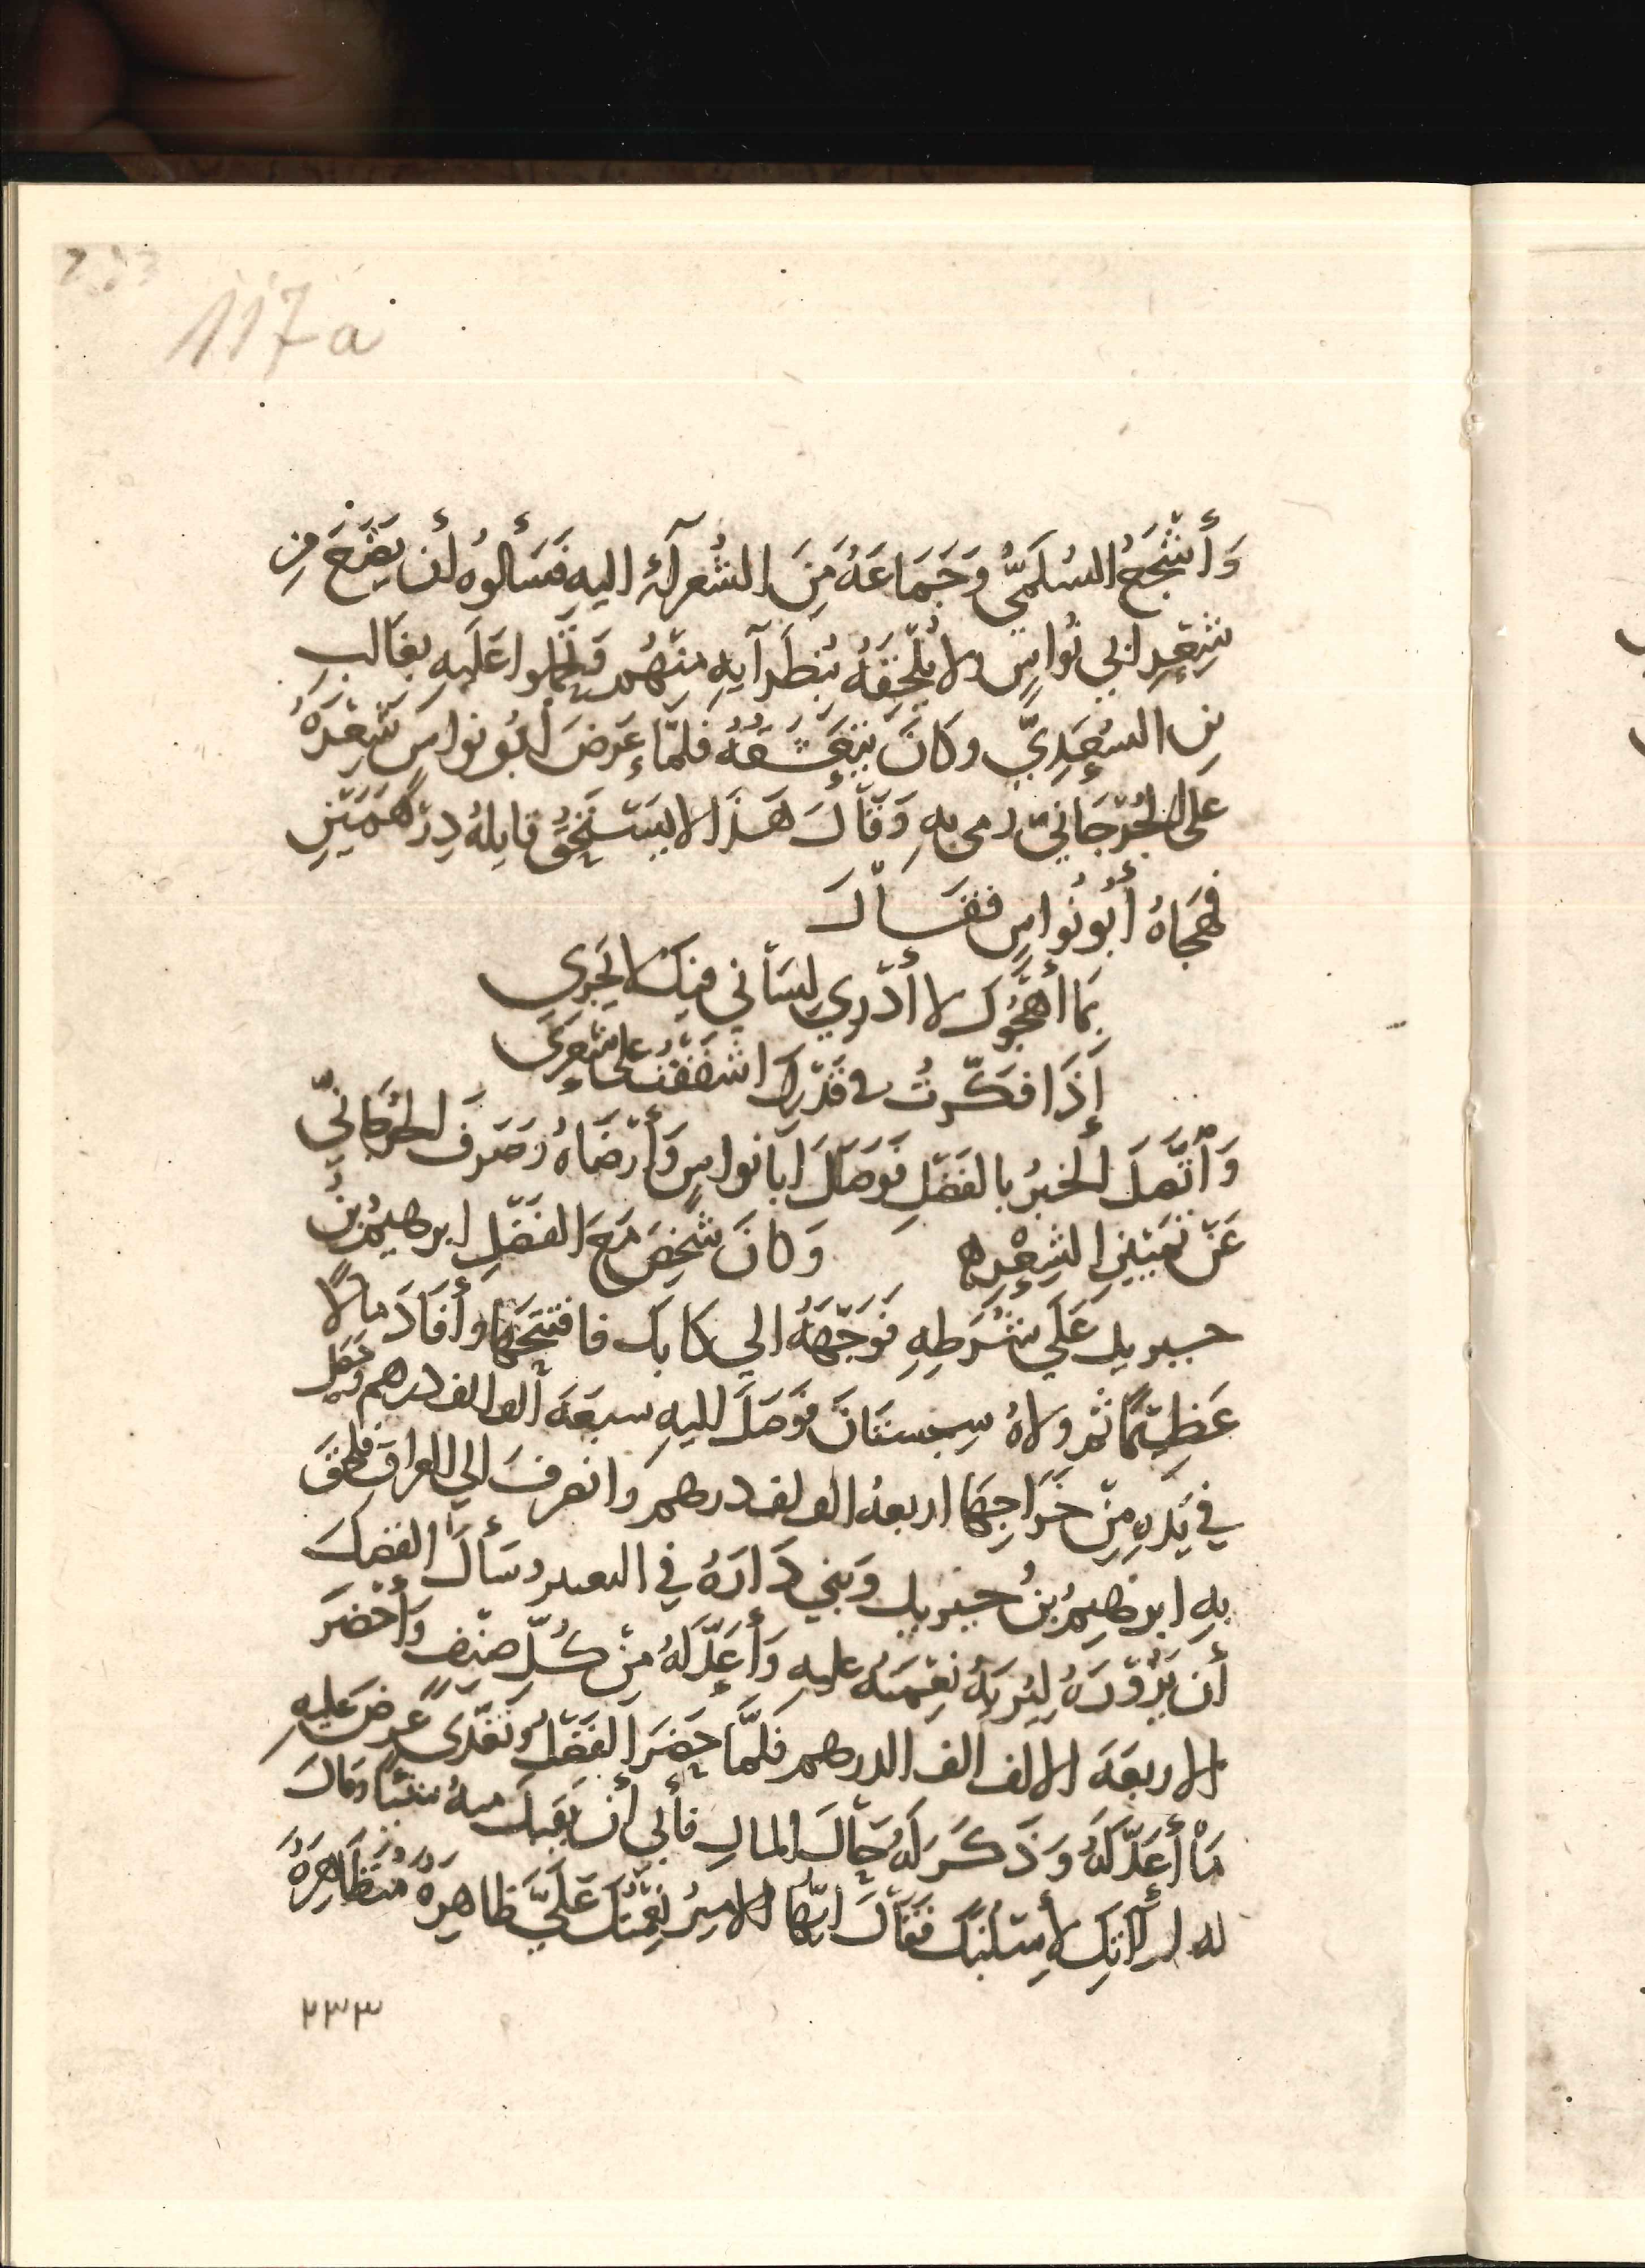 117a
وَأَشْجَعُ السُلَمِيُّ وَجَمَاعَةُ مِنَ الشُعرآءِ اليهِ فَسَأَلوُه أن يَضَعَ مِن
شِعْرِ ابي نُواسٍ ولا يُلْحِقَهُ بنُظَرآيهِ مِنْهُم وتحَّملوا عَلَيهِ بغَالبِ
بنِ السَعِدِيّ وكانَ يَتَعَشَّقُهُ فلمّا عَرَضَ أبُو نواسٍ شِعْرَهُ
على الجُرْجَانيّ رمى بهِ وَقَالَ هَذا لا يَسْتَحِقُّ قايلهُ دِرْهَمَيْنِ
فهجَاهُ أَبُو نُواسٍ فقَالَ
بِمَا أَهْجُوكَ لا أَدْرِي لِسَاْني فيك لا يَجْرِي
إِذَا فكَّرتُ في قَدْرِكَ اشفَقْتُ على شِعرِي
وَاتَّصَلَ الخَبرُ بالفَضْلِ فَوَصَلَ ابا نواسٍ وَأَرْضَاهُ وَصَرفَ الجُرجَانيّ
عَنْ تَمْيِيزِ الشِعْرِ ه وَكانَ شخصَ مَعَ الفَضْلِ ابرهيمُ بنُ
جبريل عَلَي شُرَطِهِ فَوَجَّهَهُ الي كابُل فافتتحَهَا وأَفَادَ مالاً
عَظِيْمًا ثم ولاهُ سِجستانَ فَوَصَلَ اليهِ سبعَةَ ألف الف درهم وحَصَلَ
في يَدِهِ مِنْ خَرَاجِهَا اربعةُ الف الف درهم وانصرفَ الي العِراقِ فلحِقَ
بهِ ابرَهيمُ بنُ جبريل وَبَني دَارَهُ في البغيين وسَأَلَ الفَضلَ
أن يَزُوْرَهُ لِيُرِيَهُ نِعْمَتَهُ عليهِ وَأَعَدَّ لَهُ مِنْ كُلِّ صِنْفٍ وأَحْضَرَ
الاربعَةَ الالف الف الدرهم فلمَّا حَضَرَ الفَضْلُ وتَغَدّى عرضَ عَليهِ
مَا أَعَدَّ لَهُ وَذَكَرَ لَهُ حَالَ المالِ فأَبى أن يَقبلَ منهُ شيئًا وقالَ
له لم آتِكَ لأَسْلُبَكَ فَقَالَ ايّهَا الامِيرُ نِعْمَتُكَ عَلَيَّ ظاهِرةُ مُتَظَاهِرَهُ
٢٣٣